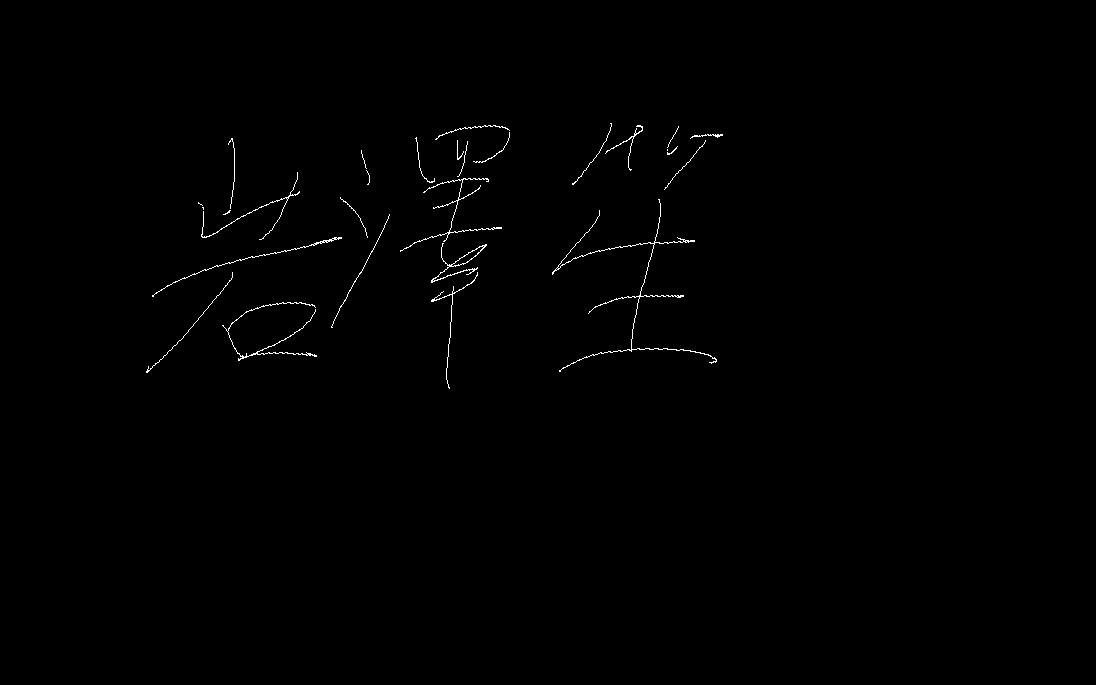 岩澤笙